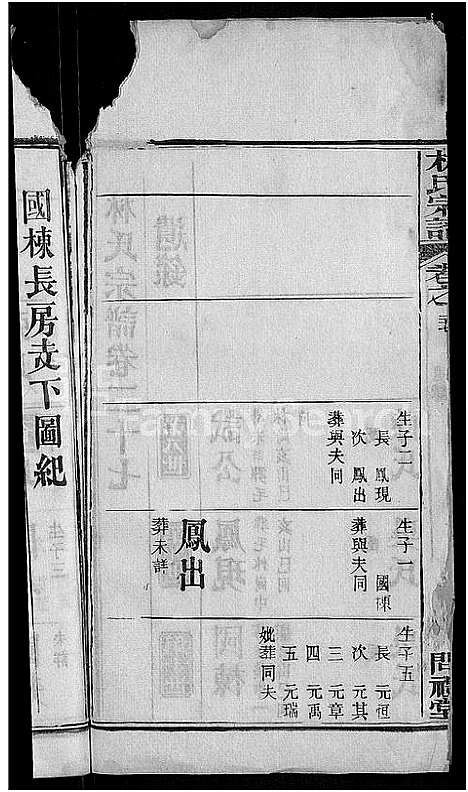 林氏宗譜
卷之
問禮堂
生子二
長 鳳現
次 鳳出
葬與夫同
生子一
國棟
葬與夫同
鳳出
葬未詳
生子五
長 元恒
次 元其
三 元章
四 元萬
五 元瑞
妣葬同夫
國棟長房支下圖紀